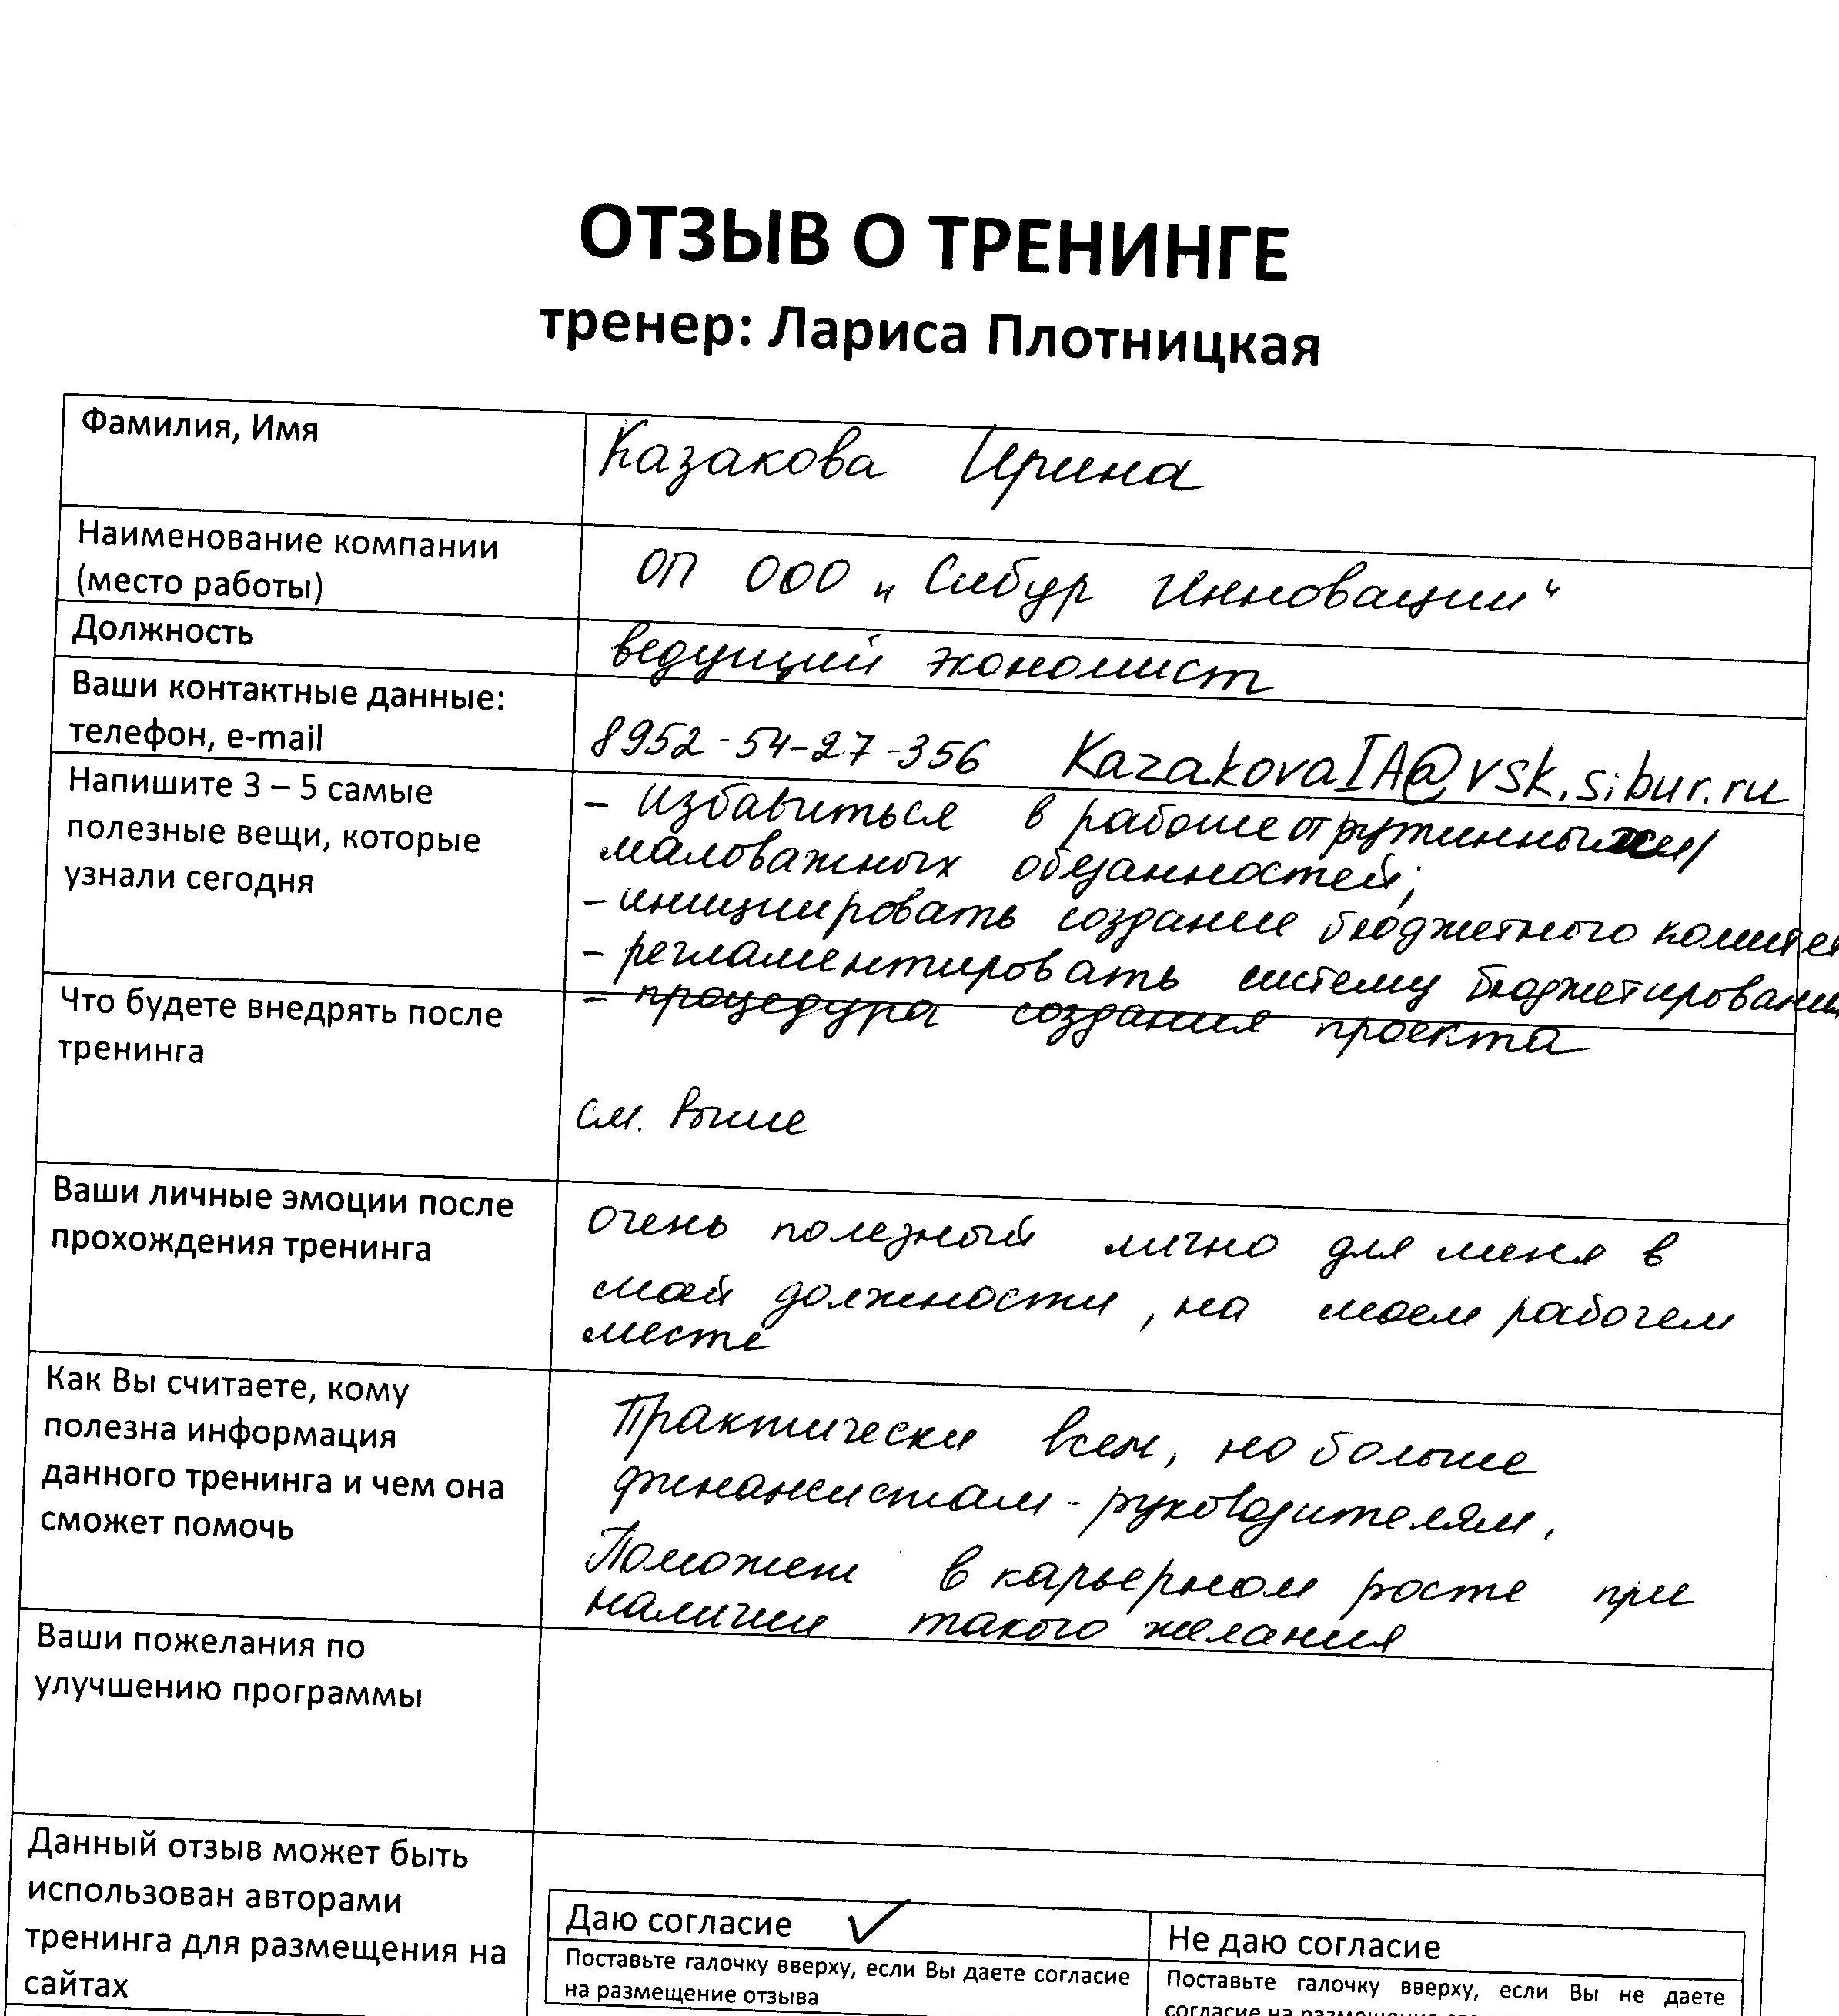 ОТЗЫВ О ТРЕНИНГЕ
тренер: Лариса Плотницкая
Фамилия, Имя
Казакова Ирина
Наименование компании
(место работы)
ОП ООО „Сибур Инновации"
Должность
ведущий экономист
Ваши контактные данные:
телефон, e-mail
8952-54-27-356 KazakovaIA@vsk.sibur.ru
Напишите 3 – 5 самые
полезные вещи, которые
узнали сегодня
- Избавиться в работе от рутинных/
маловажных обязанностей;
- инициировать создание бюджетного комитет
- регламентировать систему бюджетирования
- процедура создания проекта
Что будете внедрять после
тренинга
см. выше
Ваши личные эмоции после
прохождения тренинга
очень полезный лично для меня в
моей должности, на моем рабочем
месте
Как Вы считаете, кому
полезна информация
данного тренинга и чем она
сможет помочь
Практически всем, но больше
финансистам-руководителям.
Поможет в карьерном росте при
наличии такого желания
Ваши пожелания по
улучшению программы
Данный отзыв может быть
использован авторами
тренинга для размещения на
сайтах
Даю согласие ✓
Поставьте галочку вверху, если Вы даете согласие
на размещение отзыва
Не даю согласие
Поставьте галочку вверху, если Вы не даете
согласие на размещение